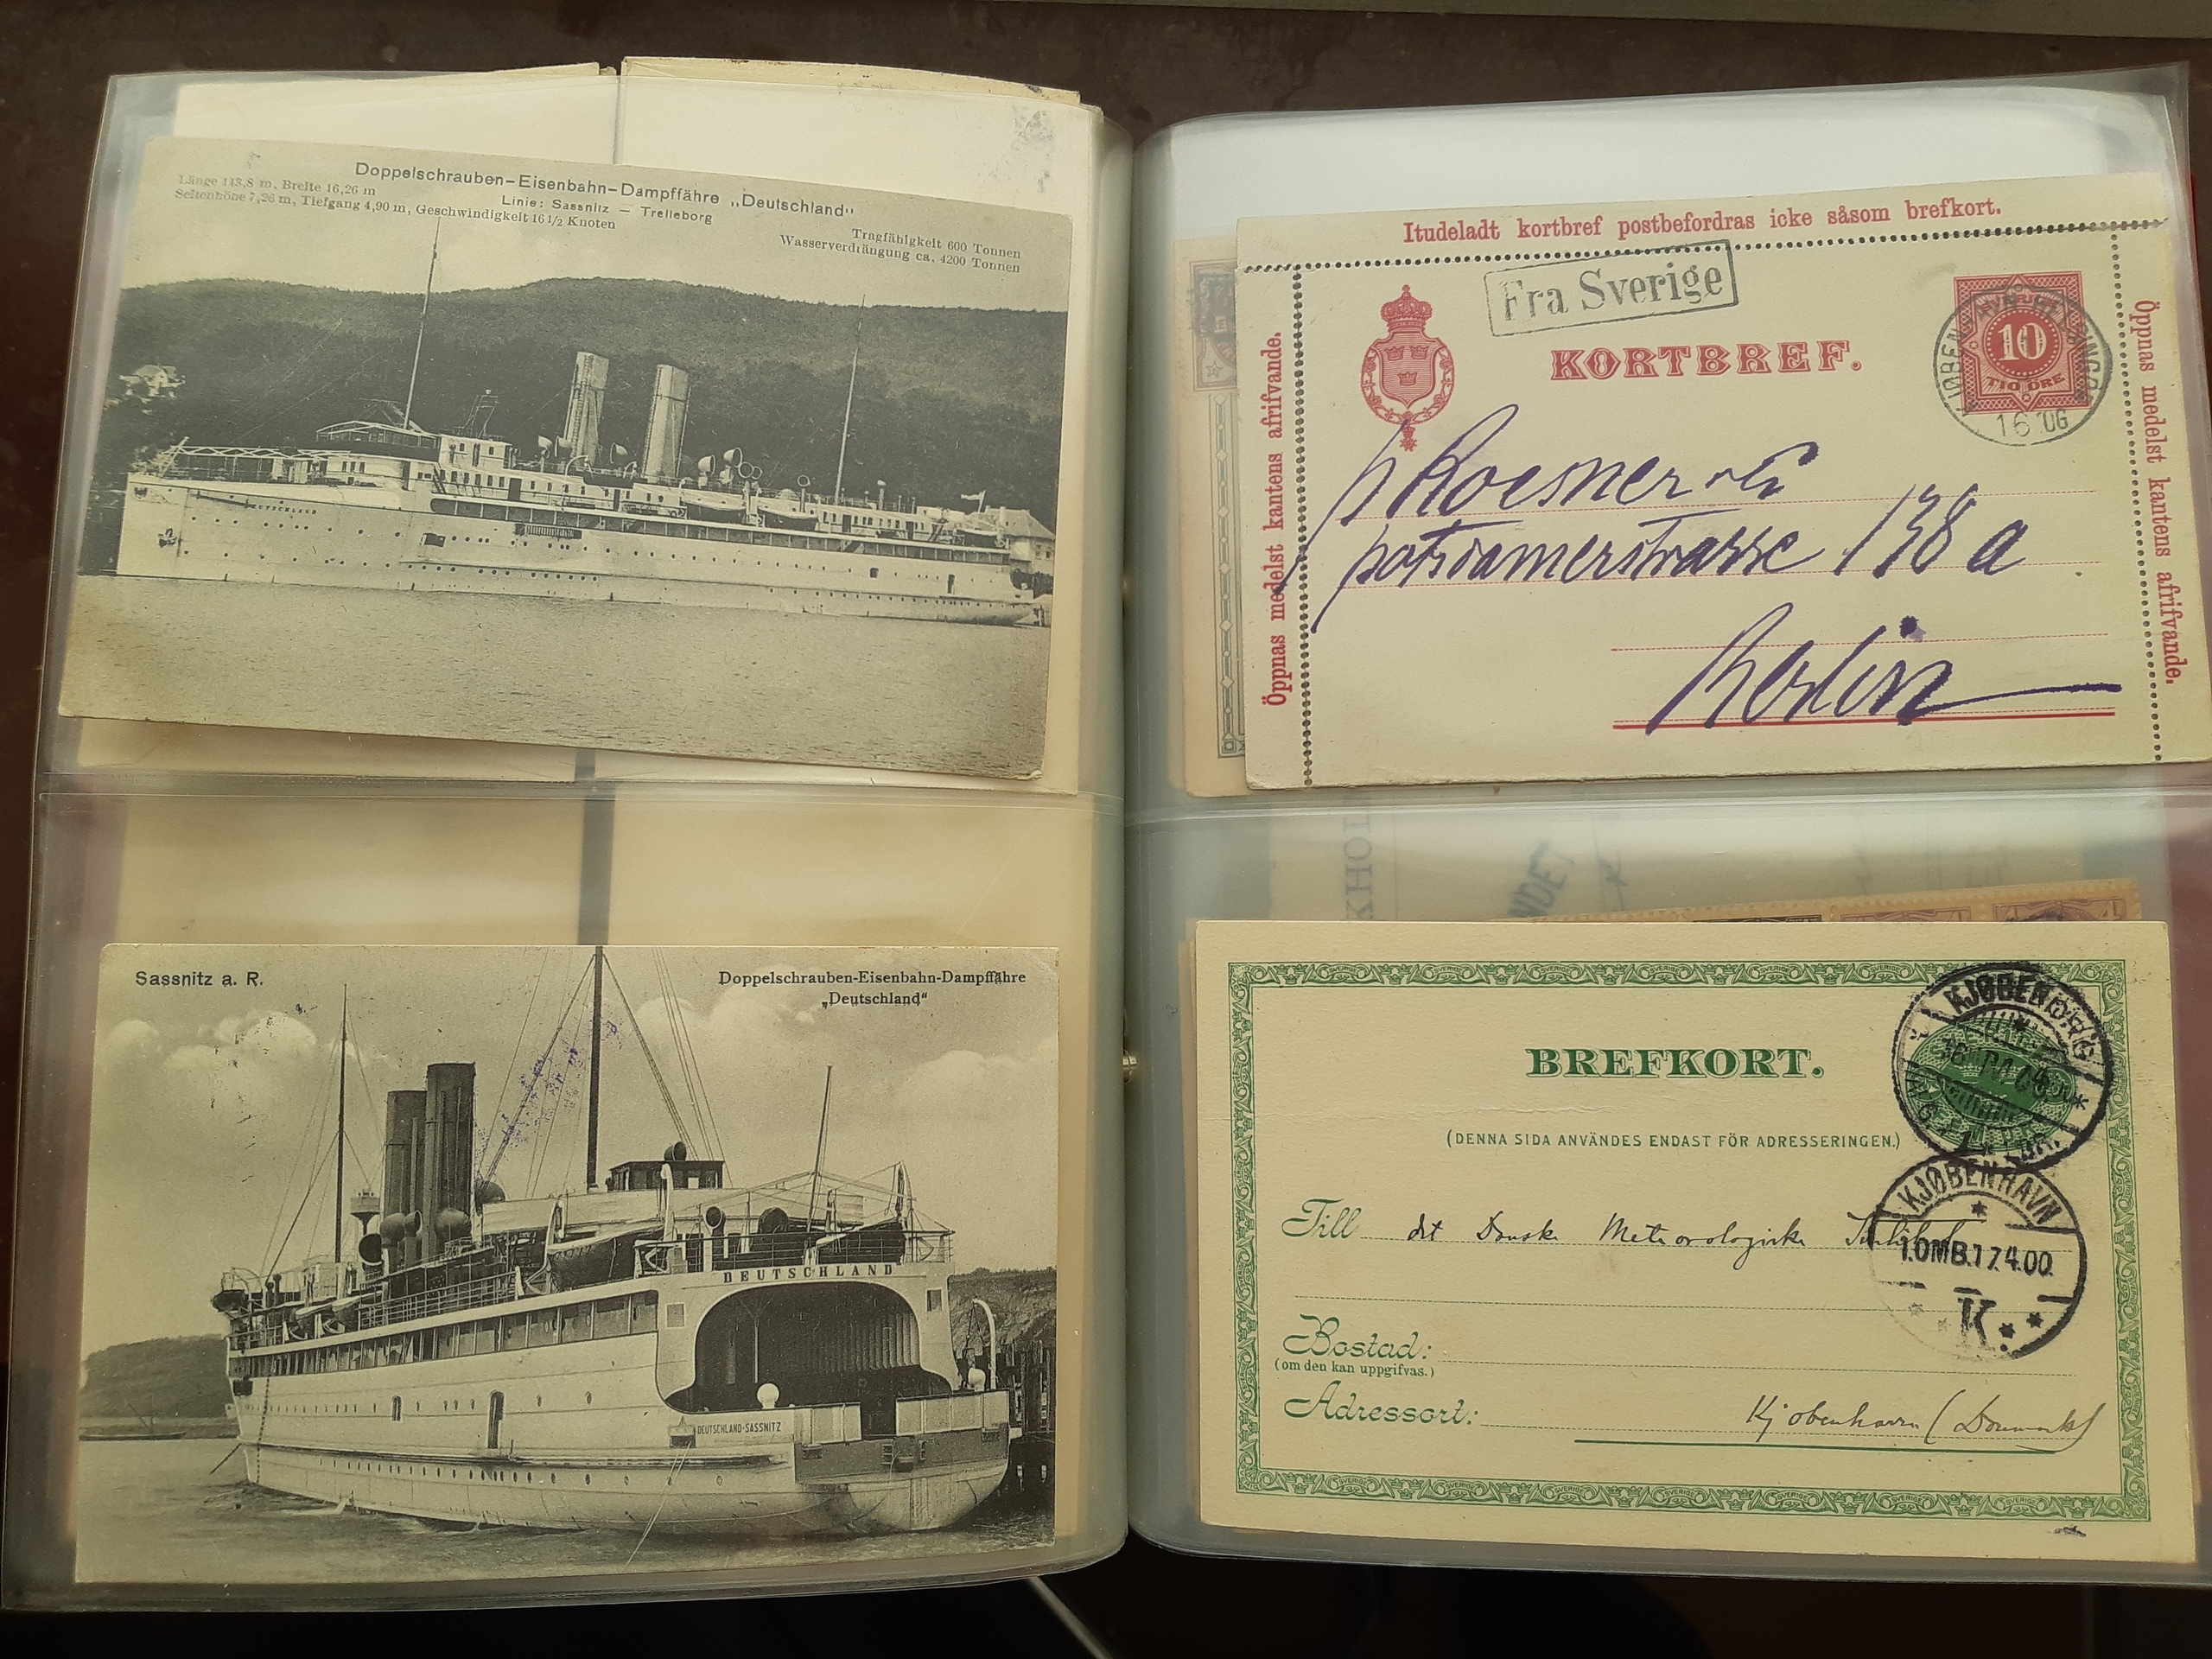 Doppelschrauben-Eisenbahn-Dampffähre „Deutschland"
Linie: Sassnitz — Trelleborg
Länge 113,8 m, Breite 16,26 m
Seitenhöhe 7,26 m, Tiefgang 4,90 m, Geschwindigkeit 16 1/2 Knoten
Tragfähigkeit 600 Tonnen
Wasserverdrängung ca. 4200 Tonnen
DEUTSCHLAND
Sassnitz a. R.
Doppelschrauben-Eisenbahn-Dampffähre
„Deutschland"
DEUTSCHLAND
DEUTSCHLAND-SASSNITZ
Itudeladt kortbref postbefordras icke såsom brefkort.
Fra Sverige
KORTBREF.
10
TIO ÖRE
KJØBENHAVN-HELSINGØR
16
Öppnas medelst kantens afrifvande.
Öppnas medelst kantens afrifvande.
Roesner
potsdamerstrasse 138 a
Berlin
KHOL
NDET
BREFKORT.
(DENNA SIDA ANVÄNDES ENDAST FÖR ADRESSERINGEN.)
KJØBEN
Till det Danske Meteorologiske
KJØBENHAVN
1.OMB.17.4.00.
K.
Bostad:
(om den kan uppgifvas.)
Adressort: Kjøbenhavn (Danmark)